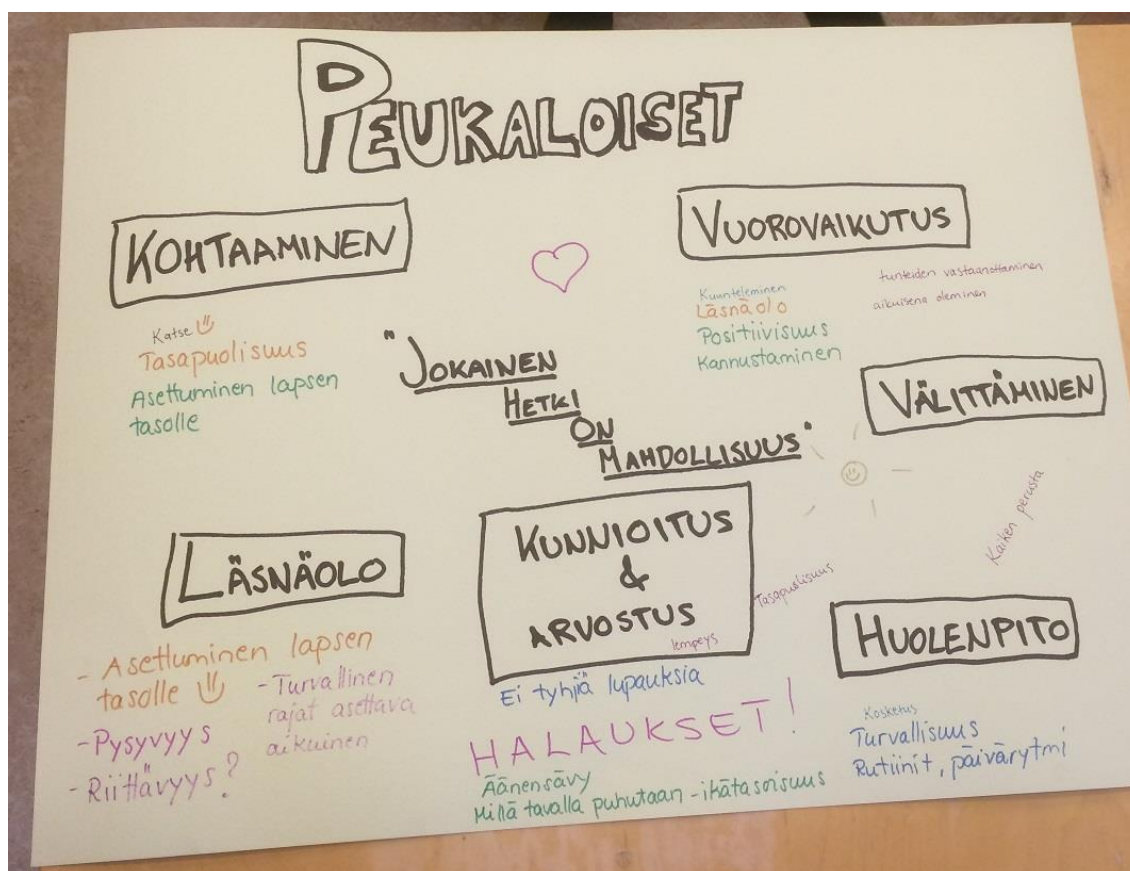 PEUKALOISET
KOHTAAMINEN
Katse
Tasapuolisuus
Asettuminen lapsen
tasolle
VUOROVAIKUTUS
Kuunteleminen
Läsnäolo
Positiivisuus
Kannustaminen
tunteiden vastaanottaminen
aikuisena oleminen
"JOKAINEN
HETKI
ON
MAHDOLLISUUS"
VÄLITTÄMINEN
Kaiken perusta
LÄSNÄOLO
- Asettuminen lapsen
tasolle
- Pysyvyys
- Riittävyys?
- Turvallinen
rajat asettava
aikuinen
KUNNIOITUS
&
ARVOSTUS
lempeys
Tasapuolisuus
Ei tyhjiä lupauksia
HALAUKSET!
Äänensävy
Millä tavalla puhutaan - ikätasoisuus
HUOLENPITO
Kosketus
Turvallisuus
Rutiinit, päivärytmi